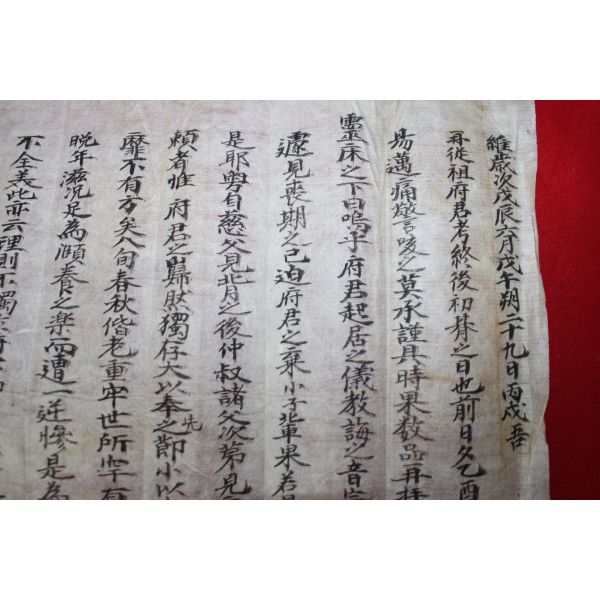 維歲次戊辰六月戊午朔二十九日丙戌
再從祖府君考終後初朞之日也前日夕乙酉
易邁痛警咳之莫承謹具時果数品再拜
靈床之下曰嗚乎府君起居之儀教誨之音
遽見喪期之已迫府君之棄小子輩果若是
是耶勢自慈父見背之後仲叔諸父次第見
頼者惟府君之巋然獨存大以奉先之節小以
靡不有方矣八旬春秋偕老重牢世所罕有
晩年滋況足為頤養之楽而遭一逆慘是為
不全美此亦云理則不獨